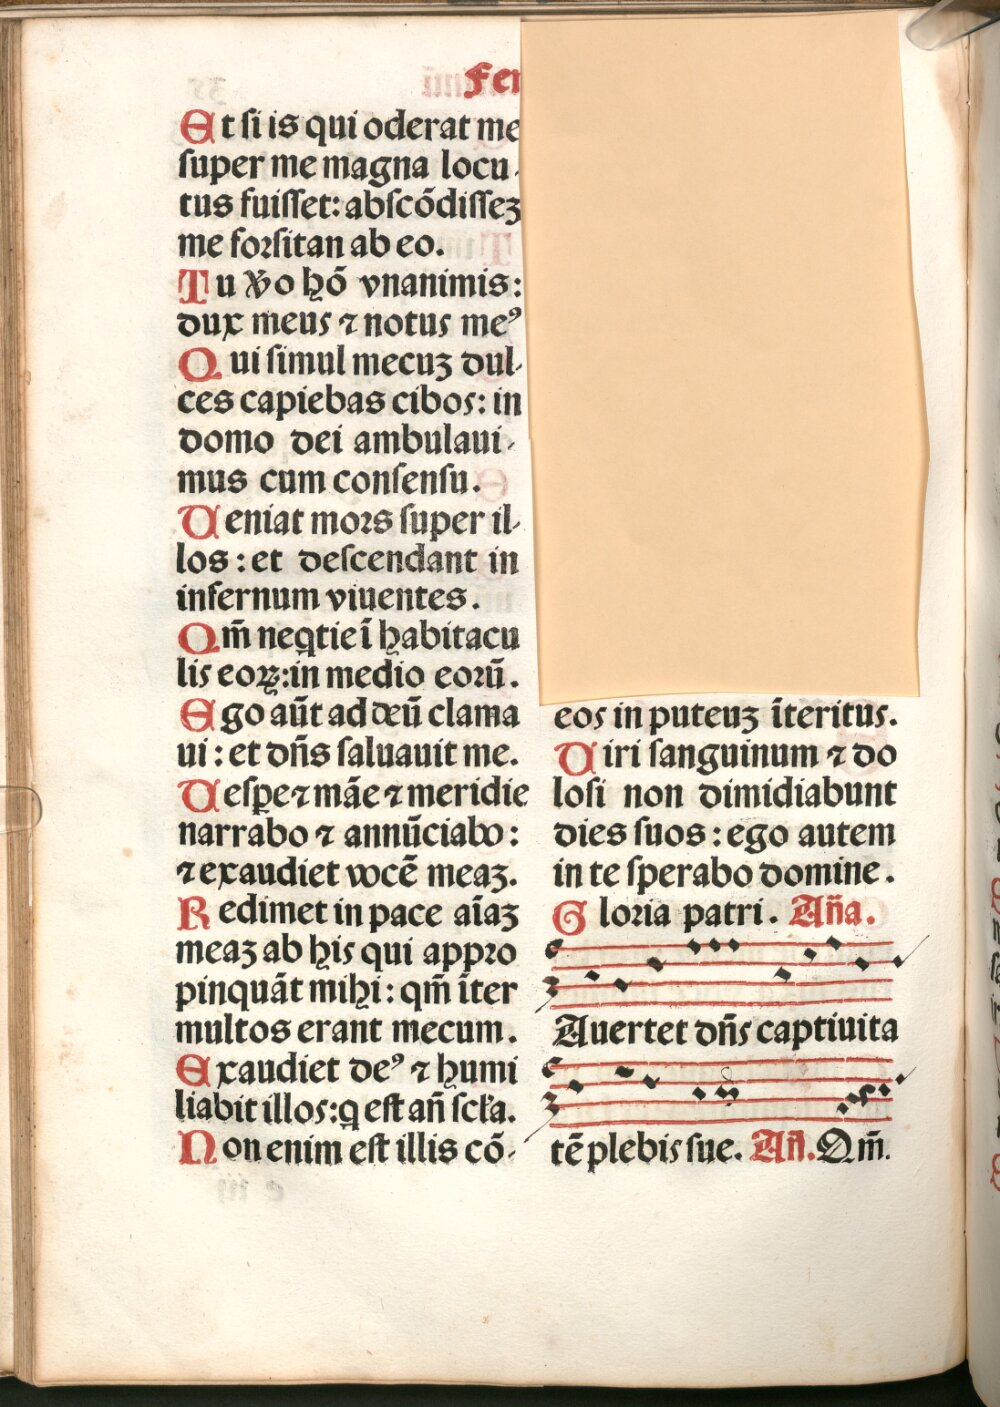 Et si is qui oderat me
super me magna locu
tus fuisset: abscōdissez
me forsitan ab eo.
Tu ꟟o hō vnanimis:
dux meus ⁊ notus meꝰ
Qui simul mecuz dul-
ces capiebas cibos: in
domo dei ambulaui-
mus cum consensu.
Ueniat mors super il-
los: et descendant in
infernum viuentes.
Qm̄ neqtie ī habitacu
lis eoꝝ: in medio eorū.
Ego aūt ad deū clama
ui: et dn̄s saluauit me.
Uespe ⁊ māe ⁊ meridie
narrabo ⁊ annūciabo:
⁊ exaudiet vocē meaz.
Redimet in pace aīaz
meaz ab his qui appro
pinquāt mihi: qm̄ īter
multos erant mecum.
Exaudiet deꝰ ⁊ humi
liabit illos: q est an̄ scła.
Non enim est illis cō-
eos in puteuz īteritus.
Uiri sanguinum ⁊ do
losi non dimidiabunt
dies suos: ego autem
in te sperabo domine.
Gloria patri. An̄a.
Auertet dn̄s captiuita
tē plebis sue. An̄. Qm̄.